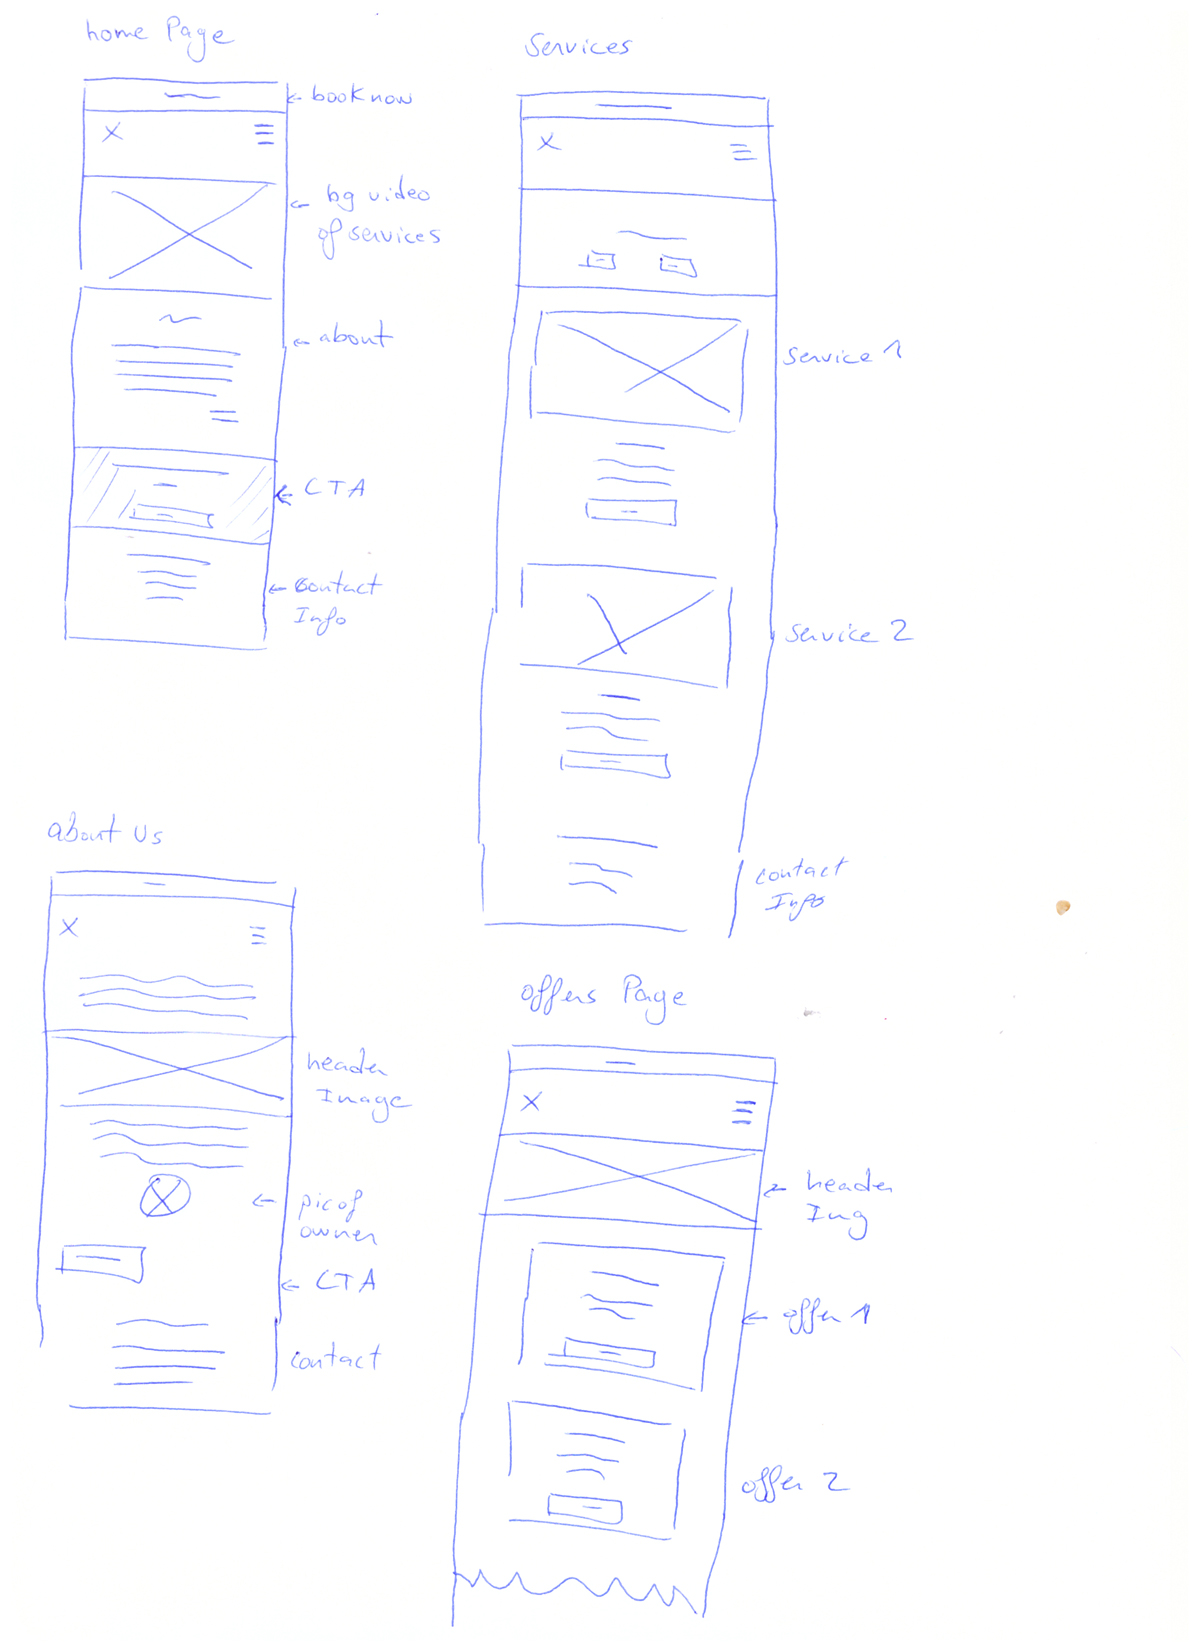 home Page
← book now
← bg video
of services
← about
← CTA
← contact
Info
Services
Service 1
Service 2
contact
Info
about Us
header
Image
← pic of
owner
← CTA
contact
offers Page
← header
Img
← offer 1
offer 2